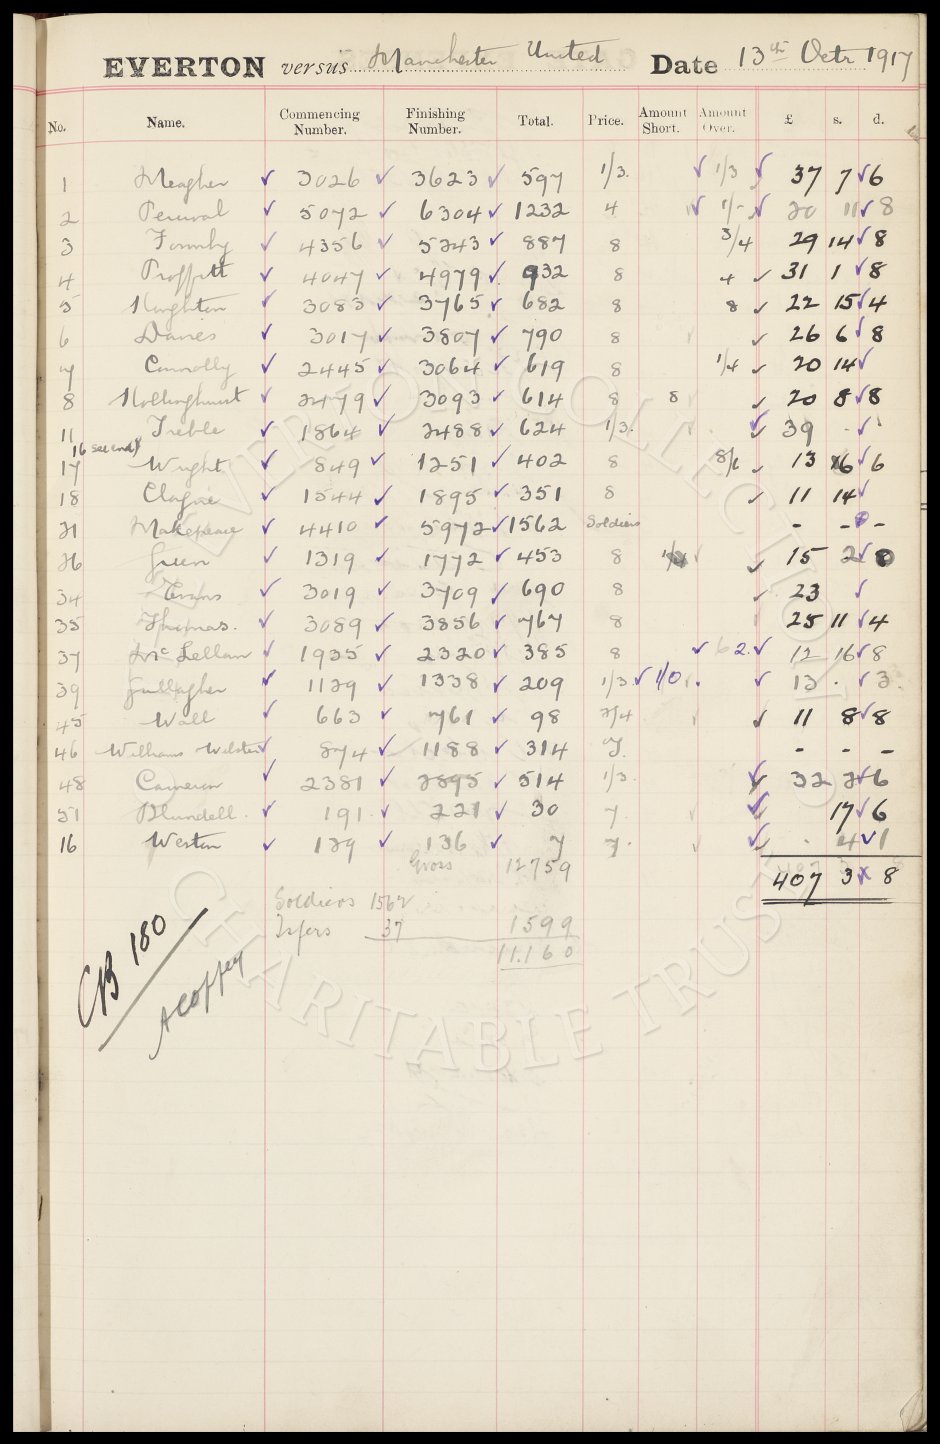 EVERTON versus Manchester United Date 13th Octr 1917
No. Name. Commencing Number. Finishing Number. Total. Price. Amount Short. Amount Over. £ s. d.
1 Meagher 3026 3623 597 1/3. 1/3 37 7 6
2 Percival 5072 6304 1232 4 1/- 20 11 8
3 Formby 4356 5243 887 8 3/4 29 14 8
4 Proffitt 4047 4979 932 8 4 31 1 8
5 Houghton 3083 3765 682 8 8 22 15 4
6 Davies 3017 3807 790 8 26 6 8
7 Connolly 2445 3064 619 8 1/4 20 14
8 Hollinghurst 2479 3093 614 8 8 20 8 8
11 Treble 1864 2488 624 1/3. 39 -
16 second
17 Wright 849 1251 402 8 13 6 6
18 Clague 1544 1895 351 8 11 14
21 Makepeace 4410 5972 1562 Soldiers - - -
26 Green 1319 1772 453 8 15 2 8
34 Evans 3019 3709 690 8 23
35 Thomas. 3089 3856 767 8 25 11 4
37 McLellan 1935 2320 385 8 2. 12 16 8
39 Gallagher 1129 1338 209 1/3 1/0 13 . 3.
45 Wall 663 761 98 2/4 11 8 8
46 Williams Webster 874 1188 314 7. - - -
48 Cameron 2381 2895 514 1/3. 32 2 6
51 Blundell. 191 221 30 7. 17 6
16 Weston 129 136 7 7. 4 1
Gross 12759
407 3 8
Soldiers 1562
Tsfers 37 1599
11.160
CB 180
A Coffey
EVERTON COLLECTION
CHARITABLE TRUST